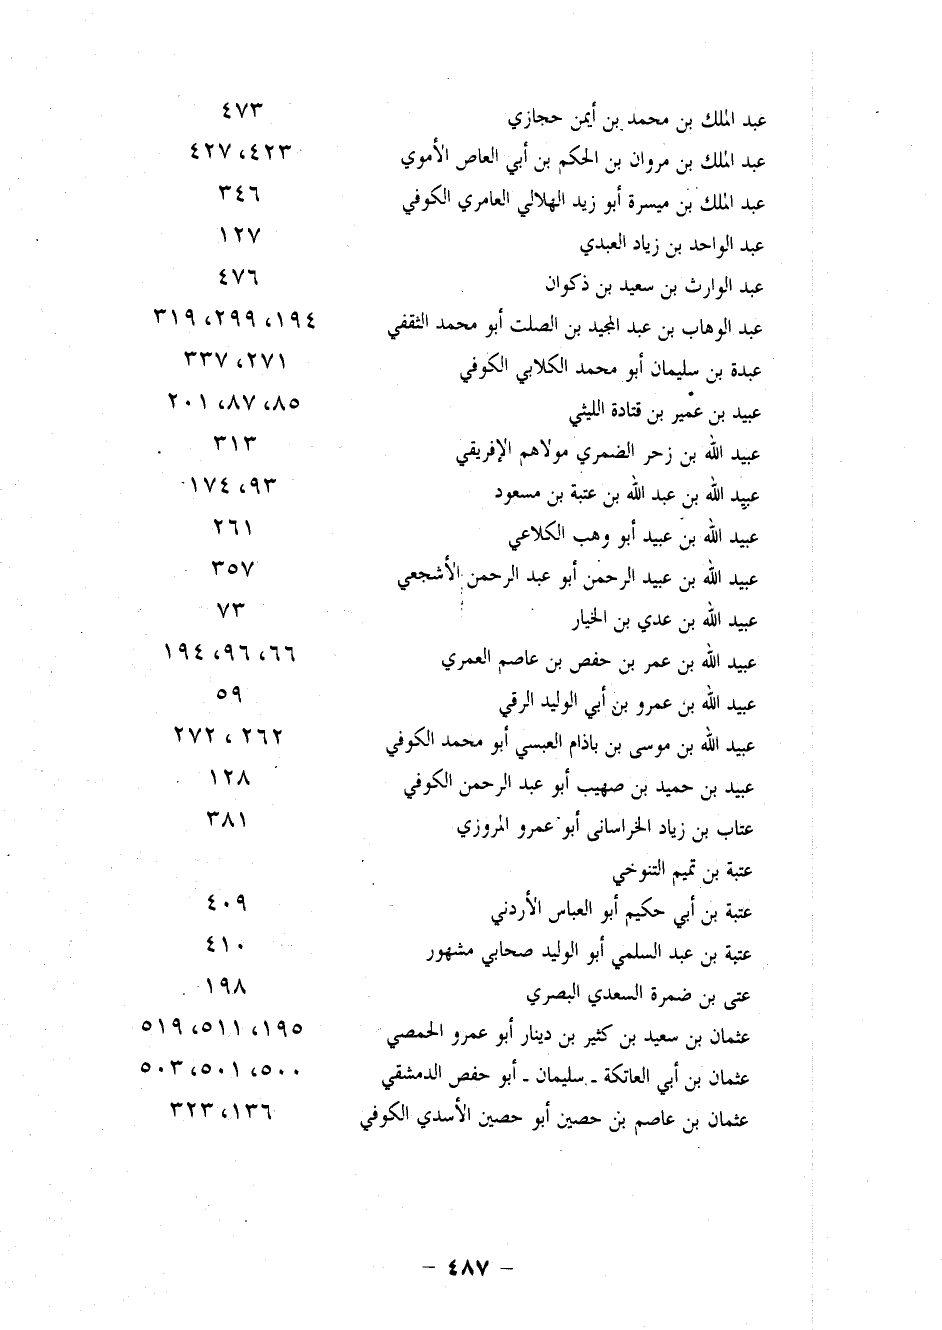 عبد الملك بن محمد بن أيمن حجازي ٤٧٣
عبد الملك بن مروان بن الحكم بن أبي العاص الأموي ٤٢٣، ٤٢٧
عبد الملك بن ميسرة أبو زيد الهلالي العامري الكوفي ٣٤٦
عبد الواحد بن زياد العبدي ١٢٧
عبد الوارث بن سعيد بن ذكوان ٤٧٦
عبد الوهاب بن عبد المجيد بن الصلت أبو محمد الثقفي ١٩٤، ٢٩٩، ٣١٩
عبدة بن سليمان أبو محمد الكلابي الكوفي ٢٧١، ٣٣٧
عبيد بن عمير بن قتادة الليثي ٨٥، ٨٧، ٢٠١
عبيد الله بن زحر الضمري مولاهم الإفريقي ٣١٣
عبيد الله بن عبد الله بن عتبة بن مسعود ٩٣، ١٧٤
عبيد الله بن عبيد أبو وهب الكلاعي ٢٦١
عبيد الله بن عبيد الرحمن أبو عبد الرحمن الأشجعي ٣٥٧
عبيد الله بن عدي بن الخيار ٧٣
عبيد الله بن عمر بن حفص بن عاصم العمري ٦٦، ٩٦، ١٩٤
عبيد الله بن عمرو بن أبي الوليد الرقي ٥٩
عبيد الله بن موسى بن باذام العبسي أبو محمد الكوفي ٢٦٢، ٢٧٢
عبيد بن حميد بن صهيب أبو عبد الرحمن الكوفي ١٢٨
عتاب بن زياد الخراسانى أبو عمرو المروزي ٣٨١
عتبة بن تميم التنوخي
عتبة بن أبي حكيم أبو العباس الأردني ٤٠٩
عتبة بن عبد السلمي أبو الوليد صحابي مشهور ٤١٠
عتى بن ضمرة السعدي البصري ١٩٨
عثمان بن سعيد بن كثير بن دينار أبو عمرو الحمصي ١٩٥، ٥١١، ٥١٩
عثمان بن أبي العاتكة ـ سليمان ـ أبو حفص الدمشقي ٥٠٠، ٥٠١، ٥٠٣
عثمان بن عاصم بن حصين أبو حصين الأسدي الكوفي ١٣٦، ٣٢٣
– ٤٨٧ –